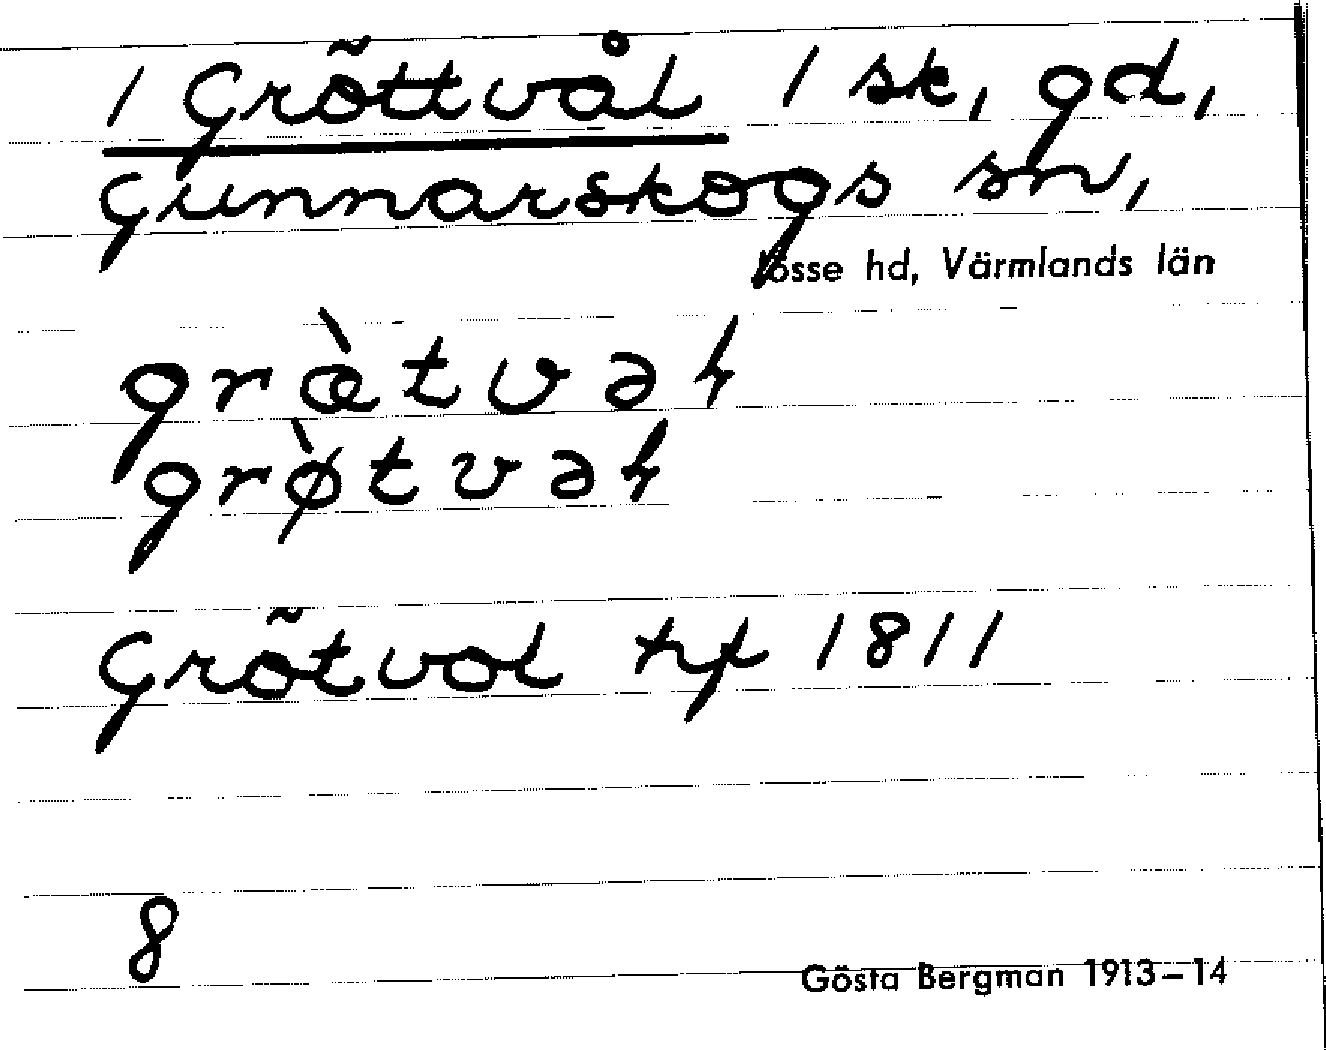 / Gröttvål / sk, gd,
Gunnarskogs sn,
Jösse hd, Värmlands län
gràtvəł
grø̀tvəł
Grötvol 1811
8
Gösta Bergman 1913–14